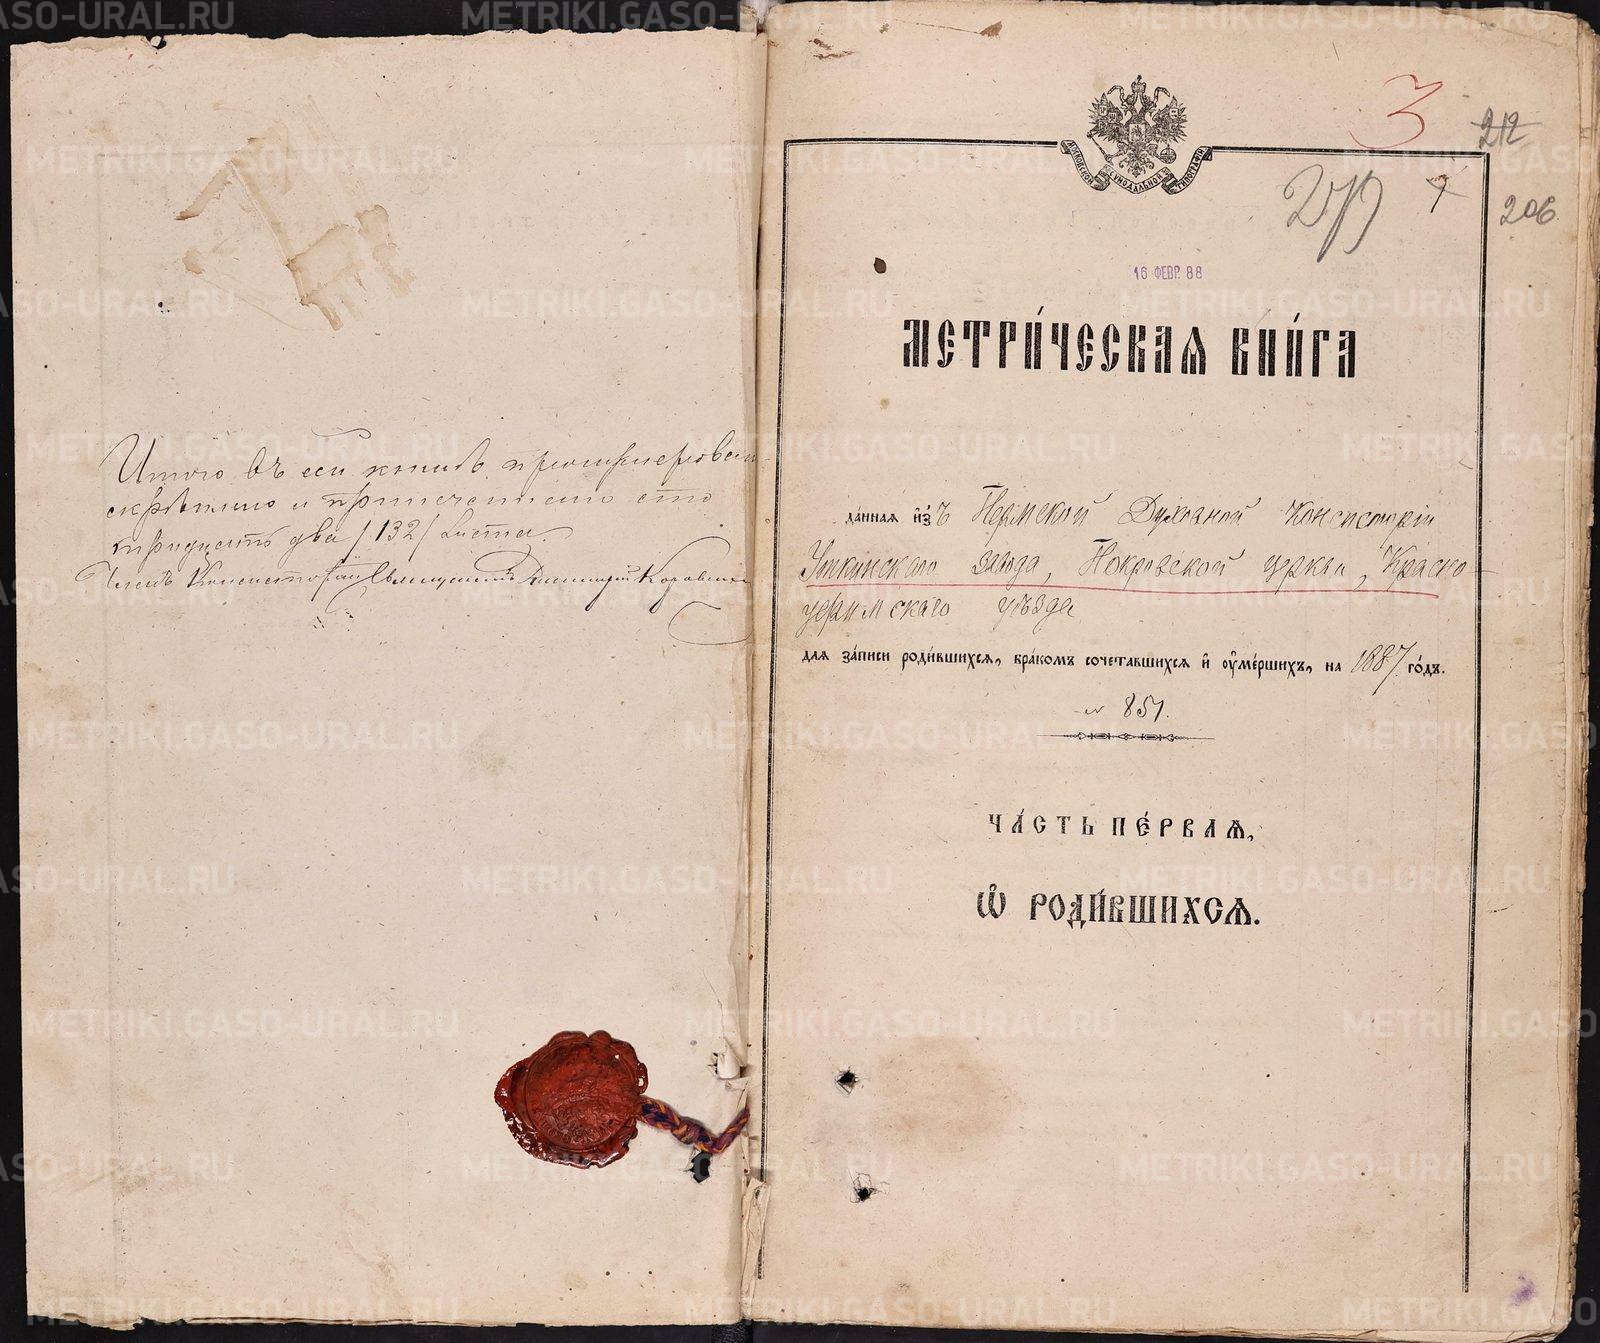 Итого въ сей книгѣ пронумеровано
скрѣплено и припечатано сто
тридцать два /132/ листа.
Членъ Консисторіи Священникъ Дмитрій
3
212
206
ДУХОВНОЙ СѴНОДАЛЬНОЙ ТИПОГРАФІИ
16 ФЕВР. 88
МЕТРИ́ЧЕСКАѦ КНИ́ГА
да́нная и҆зъ Пермской Духовной Консисторіи
Уткинскаго завода, Покровской церкви, Красно-
уфимскаго уѣзда
для за́писи роди́вшихся, бра́комъ сочета́вшихся и҆ оу҆ме́ршихъ, на 1887 го́дъ.
№ 851.
ЧА́СТЬ ПЕ́РВАѦ,
Ѽ РОДИ́ВШИХСѦ.
METRIKI.GASO-URAL.RU